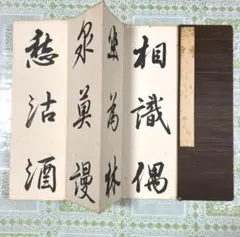 相識偶
坐為林
泉莫謾
愁沽酒